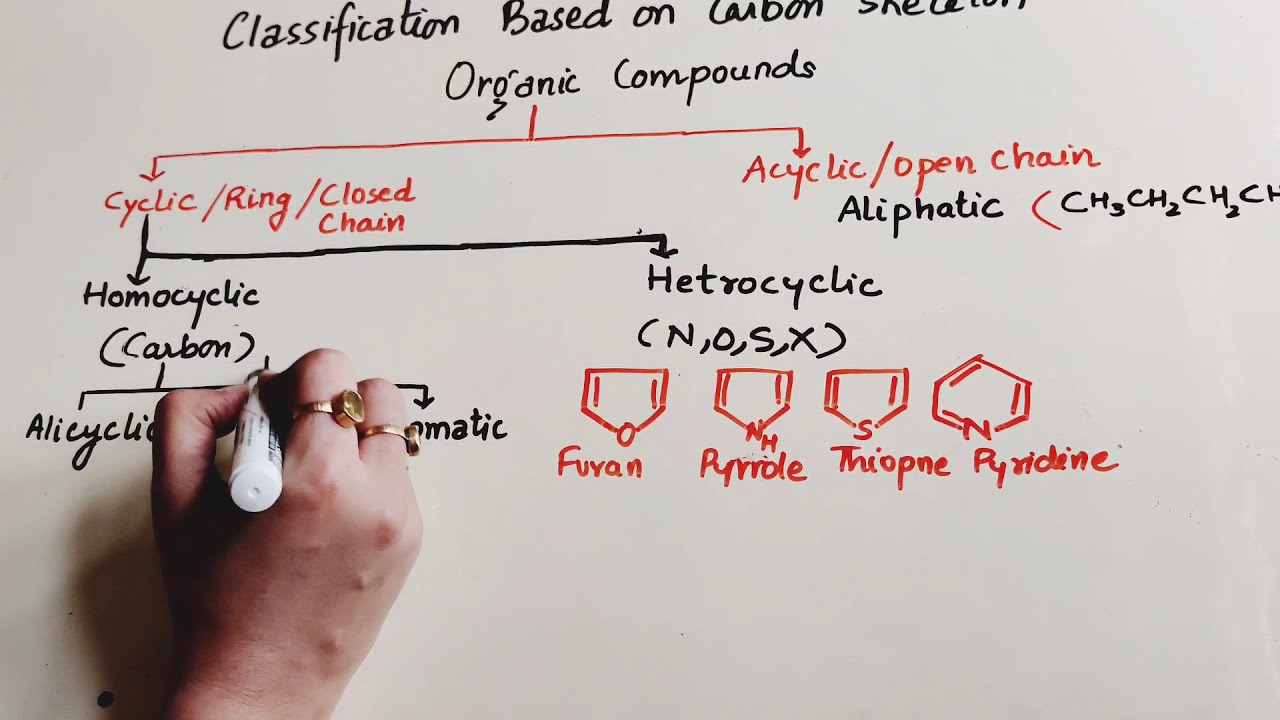 Classification Based on Carbon Skeleton
Organic Compounds
Cyclic/Ring/Closed Chain
Acyclic/open chain
Aliphatic (CH₃CH₂CH₂CH
Homocyclic
(Carbon)
Hetrocyclic
(N,O,S,X)
Alicyclic
omatic
O
N
H
S
N
Furan Pyrrole Thiopne Pyridine